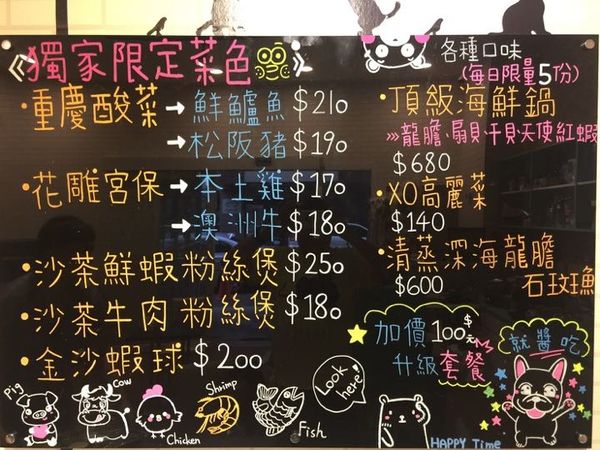 《獨家限定菜色》
·重慶酸菜→鮮鱸魚$210
→松阪豬$190
·花雕宮保→本土雞$170
→澳洲牛$180
·沙茶鮮蝦粉絲煲$250
·沙茶牛肉粉絲煲$180
·金沙蝦球$200
各種口味
(每日限量5份)
·頂級海鮮鍋
>>>龍膽、扇貝、干貝、天使紅蝦
$680
·XO高麗菜
$140
·清蒸深海龍膽
石斑魚
$600
加價100元
升級套餐
就醬吃
Pig
Cow
Chicken
Shrimp
Fish
Look here!
HAPPY Time